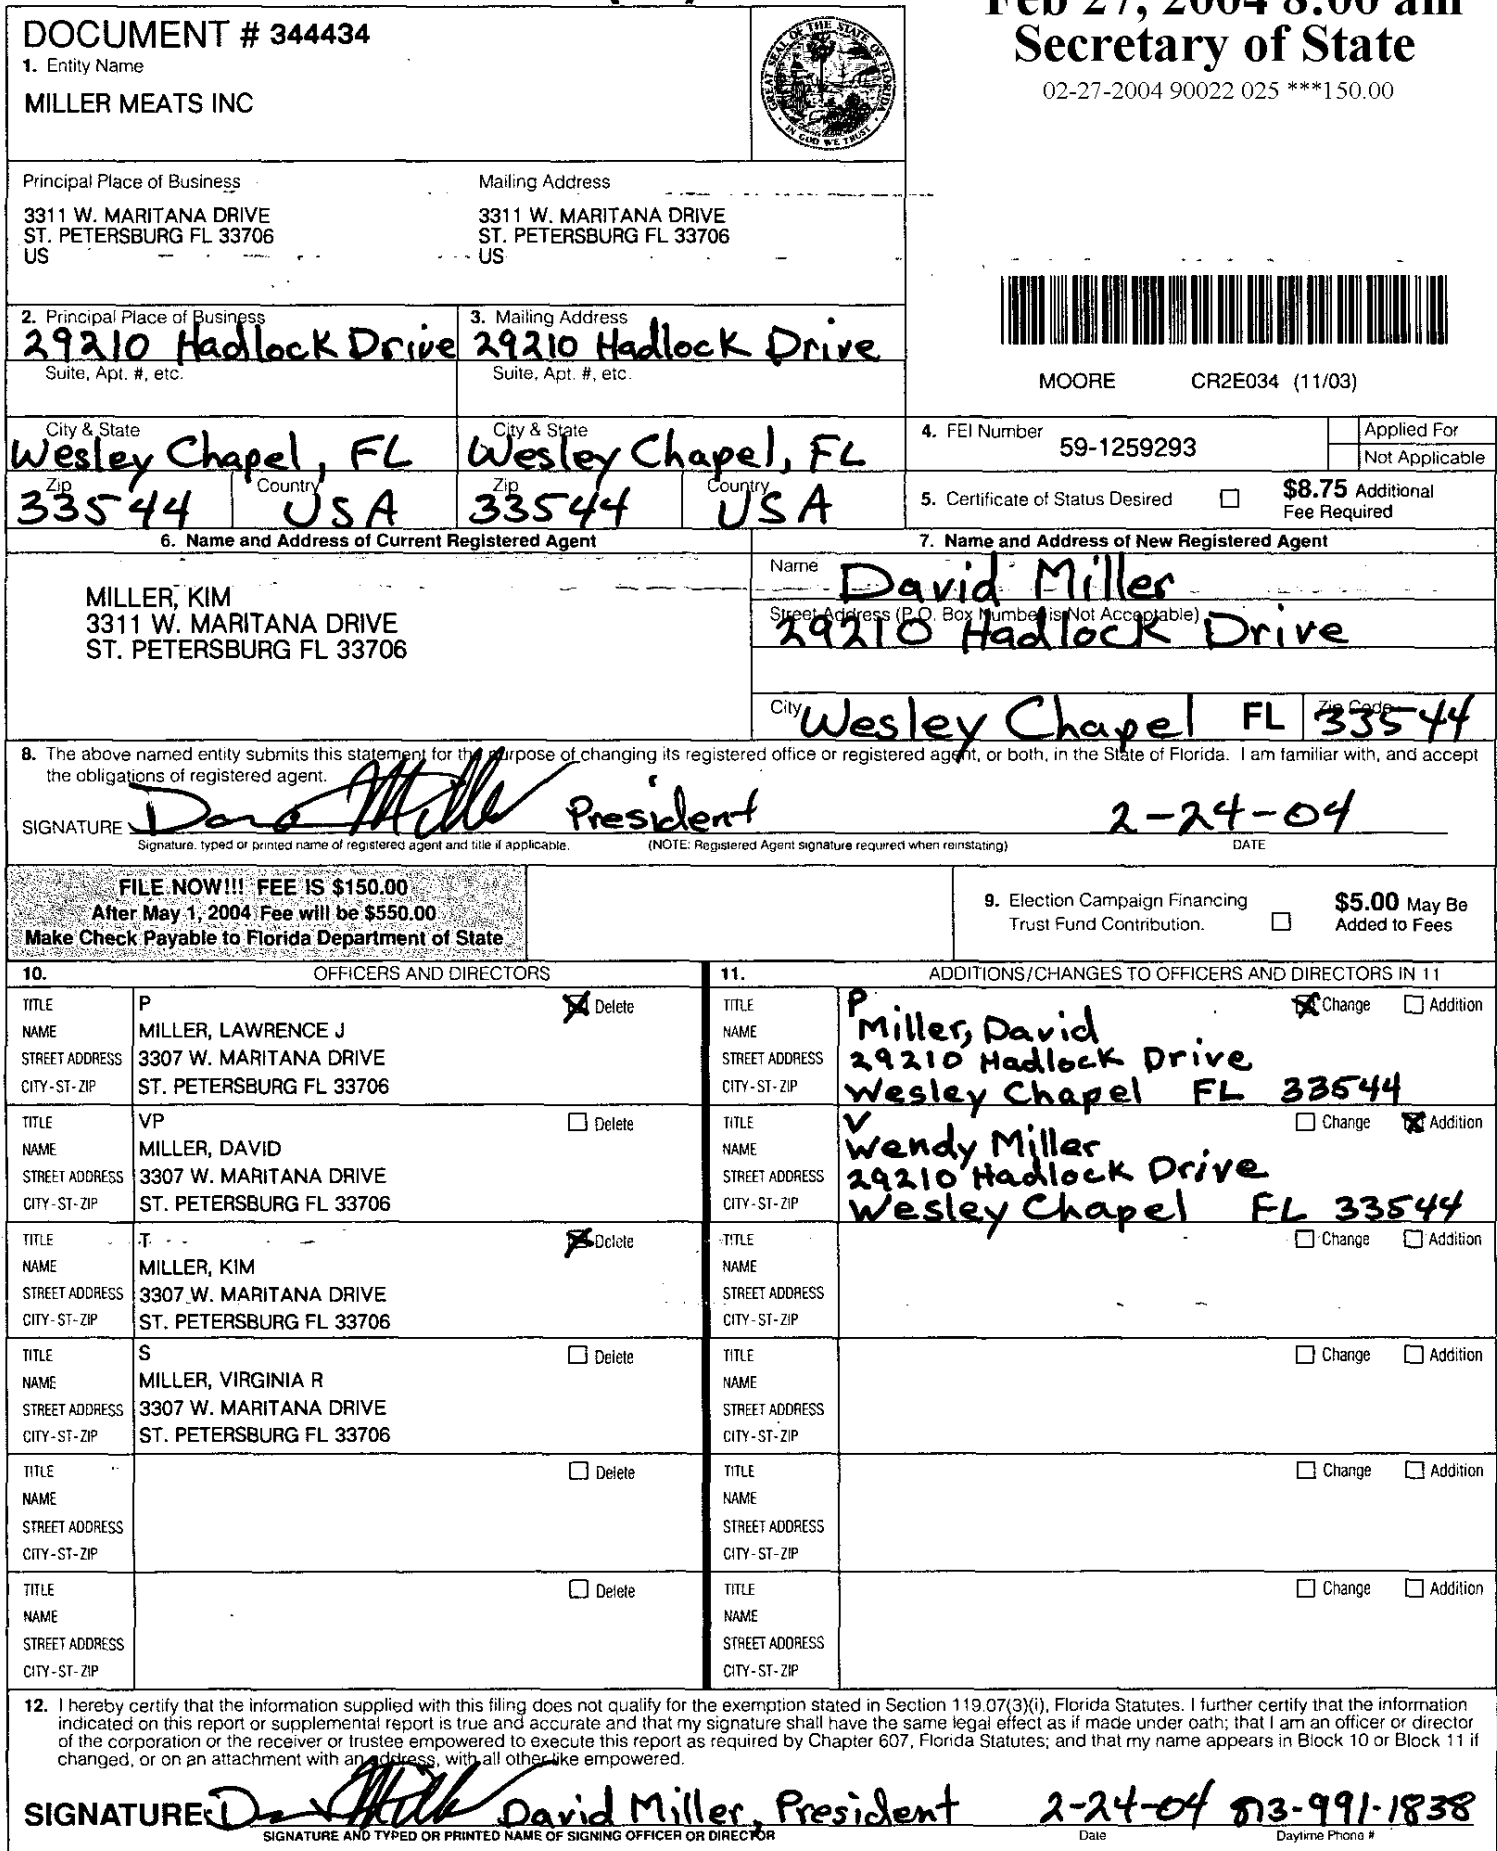 Feb 27, 2004 8:00 am
Secretary of State
02-27-2004 90022 025 ***150.00
DOCUMENT # 344434
1. Entity Name
MILLER MEATS INC
GREAT SEAL OF THE STATE OF FLORIDA
IN GOD WE TRUST
Principal Place of Business Mailing Address
3311 W. MARITANA DRIVE 3311 W. MARITANA DRIVE
ST. PETERSBURG FL 33706 ST. PETERSBURG FL 33706
US US
2. Principal Place of Business 3. Mailing Address
29210 Hadlock Drive 29210 Hadlock Drive
Suite, Apt. #, etc. Suite, Apt. #, etc.
MOORE CR2E034 (11/03)
City & State City & State
Wesley Chapel, FL Wesley Chapel, FL
Zip Country Zip Country
33544 USA 33544 USA
4. FEI Number 59-1259293 Applied For
Not Applicable
5. Certificate of Status Desired $8.75 Additional
Fee Required
6. Name and Address of Current Registered Agent
MILLER, KIM
3311 W. MARITANA DRIVE
ST. PETERSBURG FL 33706
7. Name and Address of New Registered Agent
Name David Miller
Street Address (P.O. Box Number is Not Acceptable)
29210 Hadlock Drive
City Wesley Chapel FL Zip Code 33544
8. The above named entity submits this statement for the purpose of changing its registered office or registered agent, or both, in the State of Florida. I am familiar with, and accept
the obligations of registered agent.
SIGNATURE President 2-24-04
Signature, typed or printed name of registered agent and title if applicable. (NOTE: Registered Agent signature required when reinstating) DATE
FILE NOW!!! FEE IS $150.00
After May 1, 2004 Fee will be $550.00
Make Check Payable to Florida Department of State
9. Election Campaign Financing
Trust Fund Contribution.
$5.00 May Be
Added to Fees
10. OFFICERS AND DIRECTORS
TITLE P Delete
NAME MILLER, LAWRENCE J
STREET ADDRESS 3307 W. MARITANA DRIVE
CITY-ST-ZIP ST. PETERSBURG FL 33706
TITLE VP Delete
NAME MILLER, DAVID
STREET ADDRESS 3307 W. MARITANA DRIVE
CITY-ST-ZIP ST. PETERSBURG FL 33706
TITLE T Delete
NAME MILLER, KIM
STREET ADDRESS 3307 W. MARITANA DRIVE
CITY-ST-ZIP ST. PETERSBURG FL 33706
TITLE S Delete
NAME MILLER, VIRGINIA R
STREET ADDRESS 3307 W. MARITANA DRIVE
CITY-ST-ZIP ST. PETERSBURG FL 33706
TITLE Delete
NAME
STREET ADDRESS
CITY-ST-ZIP
TITLE Delete
NAME
STREET ADDRESS
CITY-ST-ZIP
11. ADDITIONS/CHANGES TO OFFICERS AND DIRECTORS IN 11
TITLE P Change Addition
NAME Miller, David
STREET ADDRESS 29210 Hadlock Drive
CITY-ST-ZIP Wesley Chapel FL 33544
TITLE V Change Addition
NAME Wendy Miller
STREET ADDRESS 29210 Hadlock Drive
CITY-ST-ZIP Wesley Chapel FL 33544
TITLE Change Addition
NAME
STREET ADDRESS
CITY-ST-ZIP
TITLE Change Addition
NAME
STREET ADDRESS
CITY-ST-ZIP
TITLE Change Addition
NAME
STREET ADDRESS
CITY-ST-ZIP
TITLE Change Addition
NAME
STREET ADDRESS
CITY-ST-ZIP
12. I hereby certify that the information supplied with this filing does not qualify for the exemption stated in Section 119.07(3)(i), Florida Statutes. I further certify that the information
indicated on this report or supplemental report is true and accurate and that my signature shall have the same legal effect as if made under oath; that I am an officer or director
of the corporation or the receiver or trustee empowered to execute this report as required by Chapter 607, Florida Statutes; and that my name appears in Block 10 or Block 11 if
changed, or on an attachment with an address, with all other like empowered.
SIGNATURE: David Miller, President 2-24-04 813-991-1838
SIGNATURE AND TYPED OR PRINTED NAME OF SIGNING OFFICER OR DIRECTOR Date Daytime Phone #